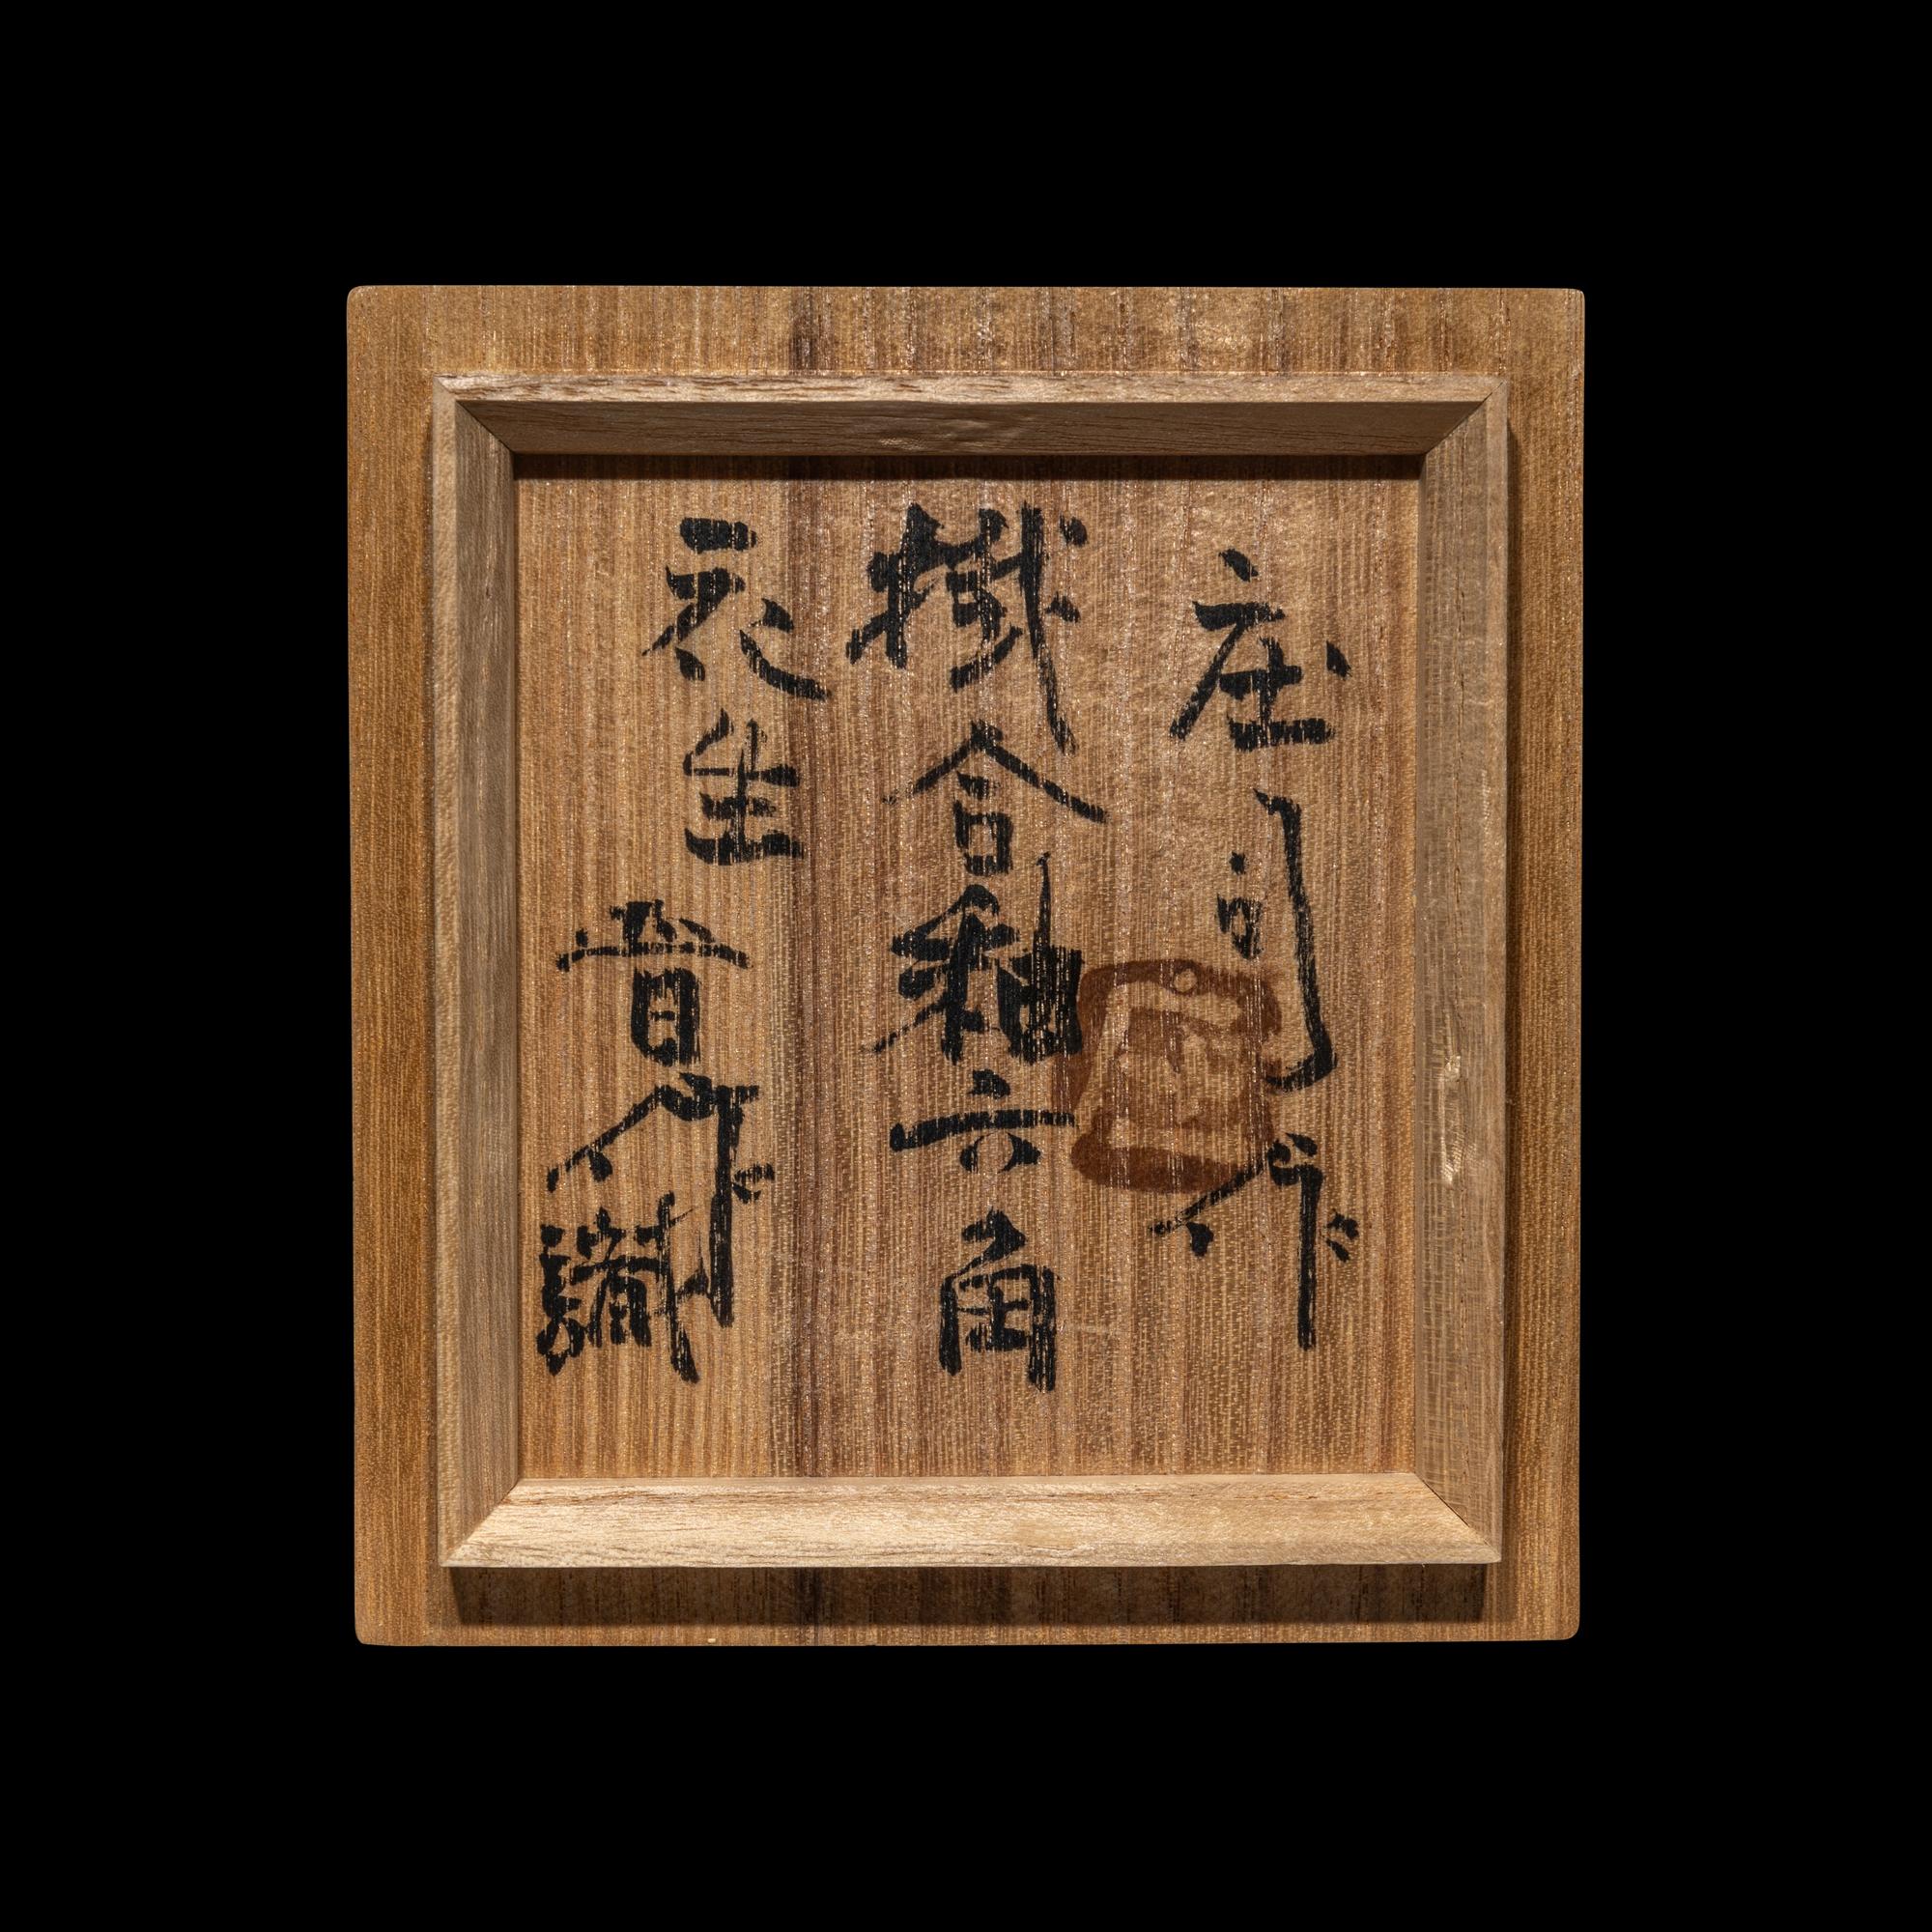 庄司作
掛合釉六角
花生 晋作識